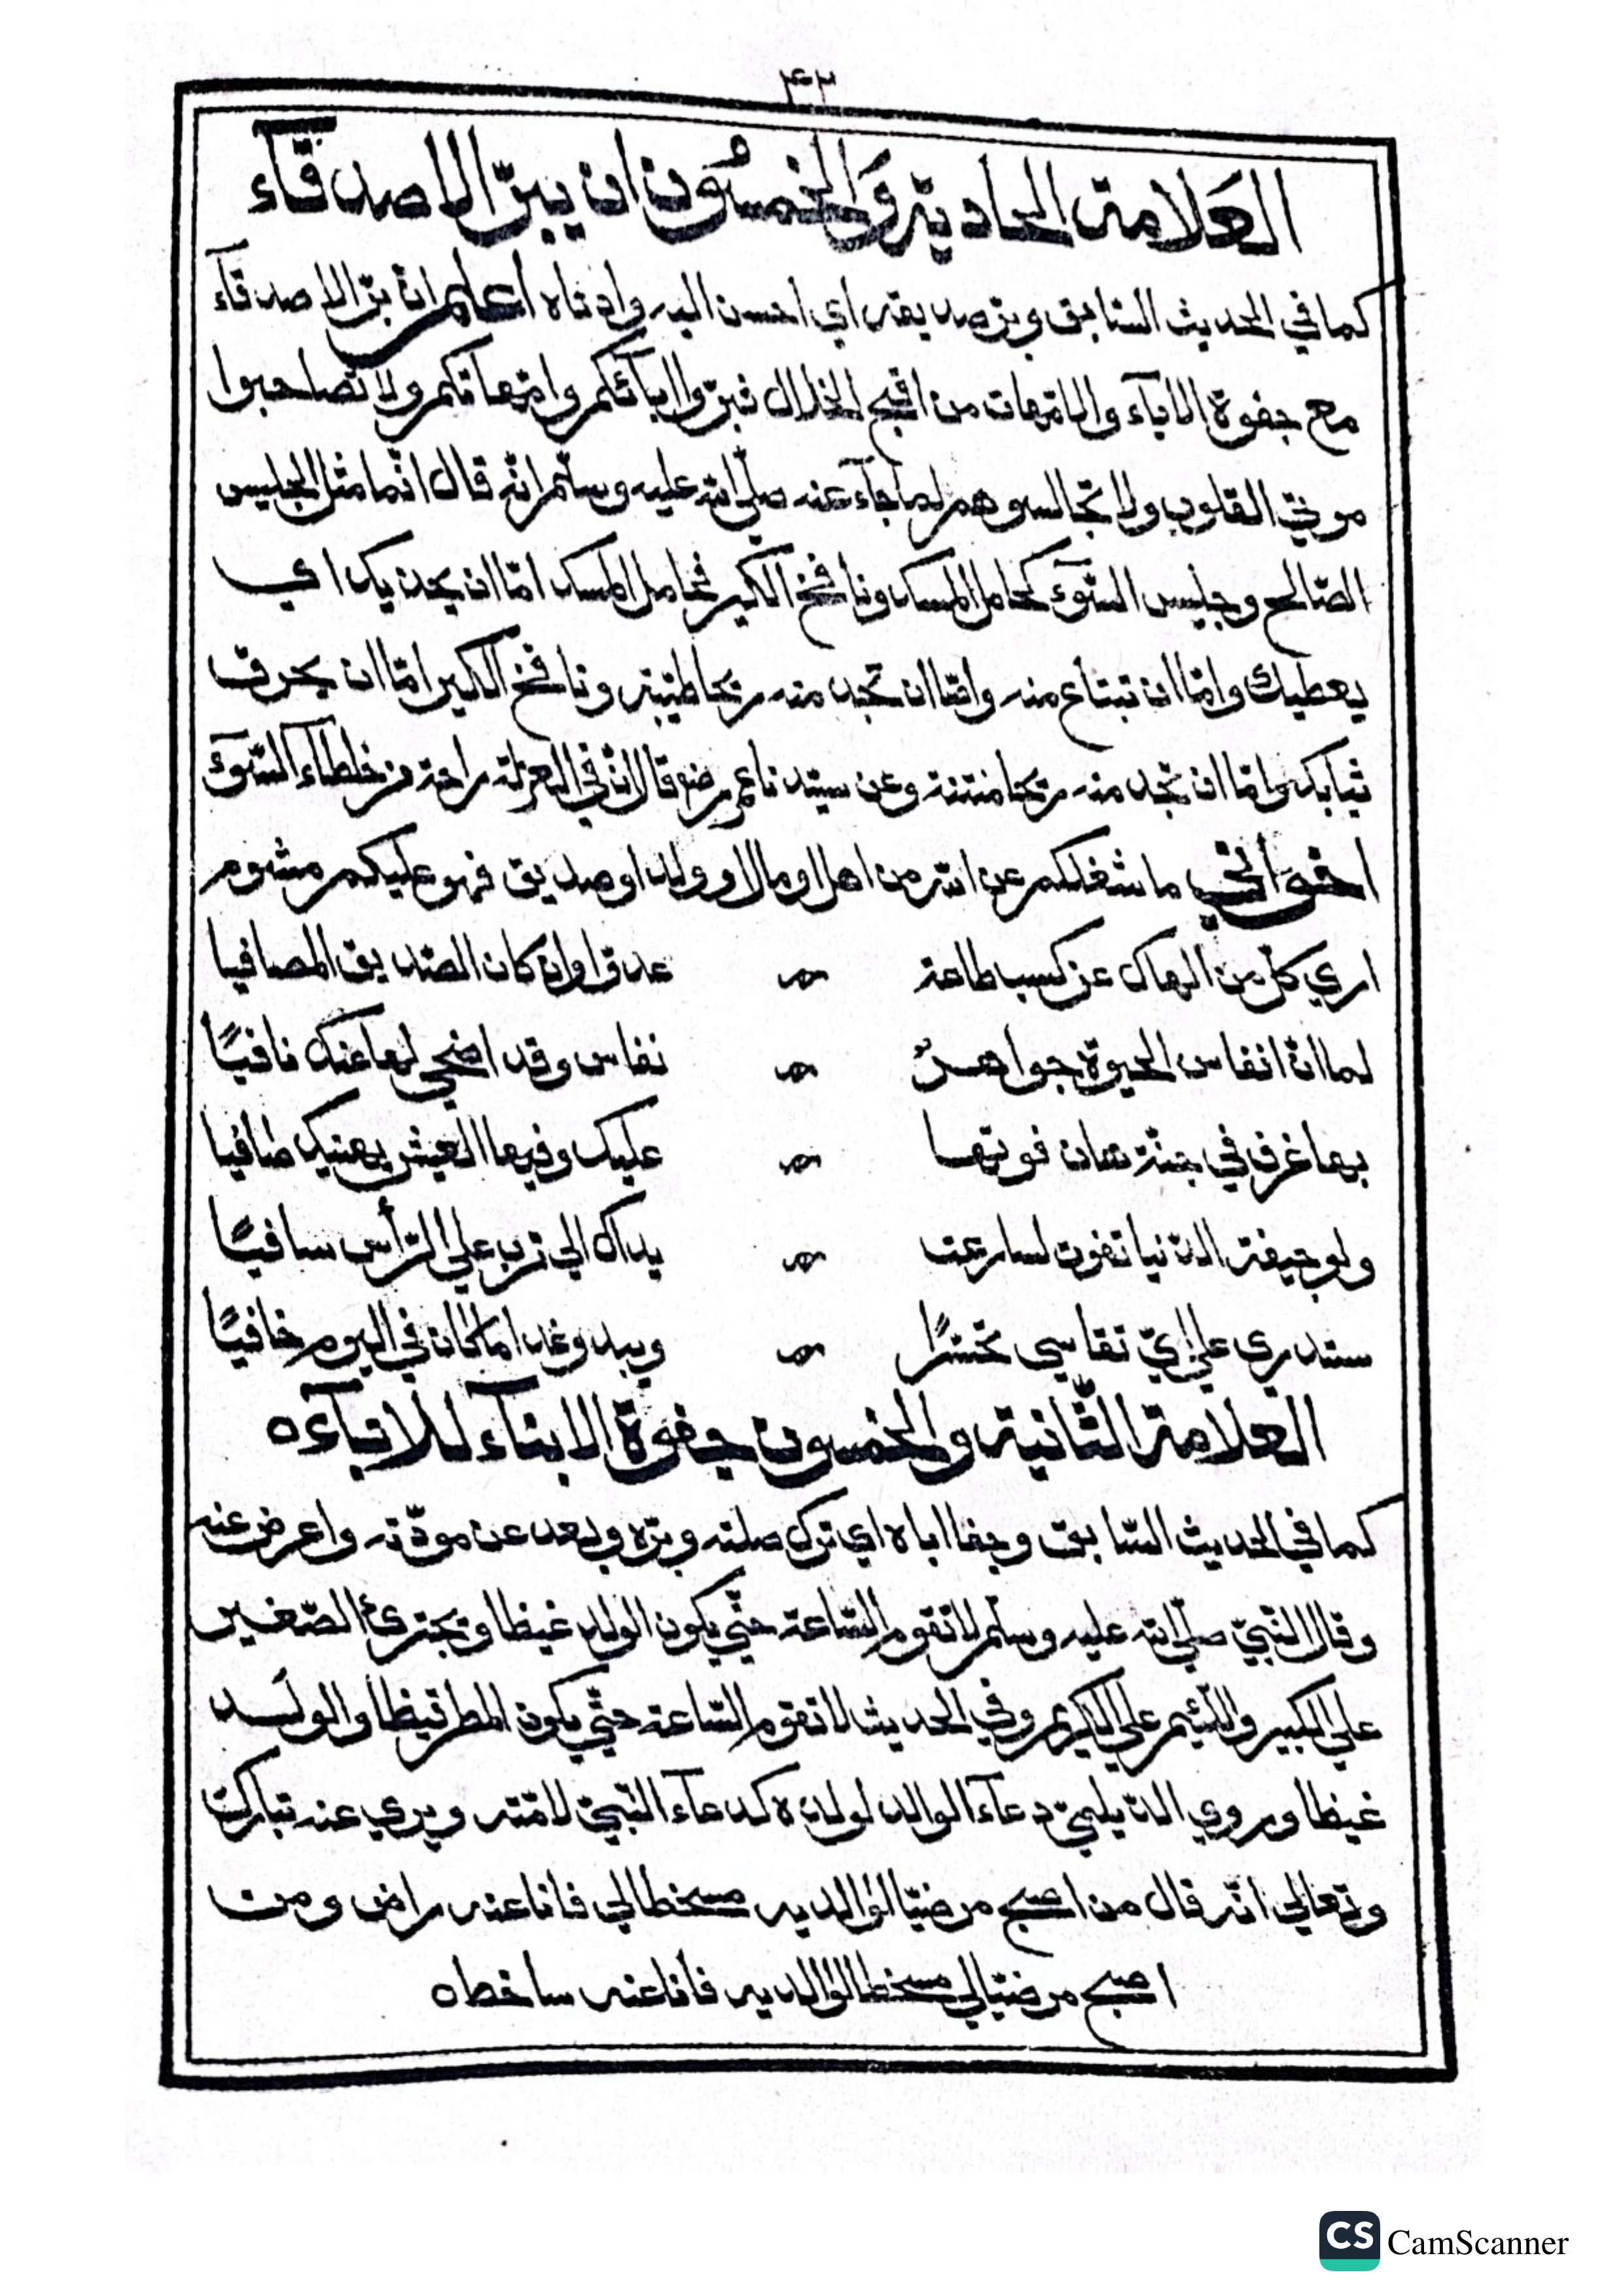 ٤٣
العلامة الحادية والخمسون ان يبرّ الاصدقآء
كما في الحديث السّابق وبرّ صديقه اي احسن اليه وادناه اعلم انّ برّ الاصدقآء
مع جفوة الابآء والامّهات من اقبح الخلال فبرّوا ابآئكم وامّهاتكم ولا تصاحبوا
موتي القلوب ولا تجالسوهم لما جآء عنه صلّي الله عليه وسلّم انّه قال انّما مثل الجليس
الصّالح وجليس السّوء كحامل المسك ونافخ الكير فحامل المسك امّا ان يحذيك اي
يعطيك وامّا ان تبتاع منه وامّا ان تجد منه ريحا طيّبة ونافخ الكير امّا ان يحرق
ثيابك وامّا ان تجد منه ريحا منتنة وعن سيّدنا عمر رضه قال انّ في العزلة راحة من خلطاء السّوء
ما شغلكم عن الله من اهل او مال او ولد او صديق فهو عليكم مشوم
اري كلّ من الهاك عن كسب طاعة عدوّا وان كان الصّديق المصافيا
لما انّ انفاس الحيوة جواهرٌ نفاس وقد اضحي لها عنك نافيًا
بها غرف في جنّة هان فوتها عليك وفيها العيش يهنيك صافيا
ولو جيفة الدّنيا تفوت لسارعت يداك الي ترب علي الرّأس سافيًا
ستدري علي ايّ تقاسي تحسّرًا ويبدو غدا ما كان في اليوم خافيًا
العلامة الثّانية والخمسون جفوة الابنآء للابآء ه
كما في الحديث السّابق وجفا اباه اي ترك صلته وبرّه وبعد عن مودّته واعرض عنه
وقال النّبيّ صلّي الله عليه وسلّم لا تقوم السّاعة حتّي يكون الولد غيظا ويجترئ الصّغير
علي الكبير واللّئيم علي الكريم وفي الحديث لا تقوم السّاعة حتّي يكون المطر قيظا والولد
غيظا وروي الدّيلميّ دعآء الوالد لولده كدعآء النّبيّ لامّته ويروي عنه تبارك
وتعالي انّه قال من اصبح مرضيّا لوالديه مسخطا لي فانا عنه راض ومن
اصبح مرضيّا لي مسخطا لوالديه فأنا عنه ساخط ه
CS CamScanner